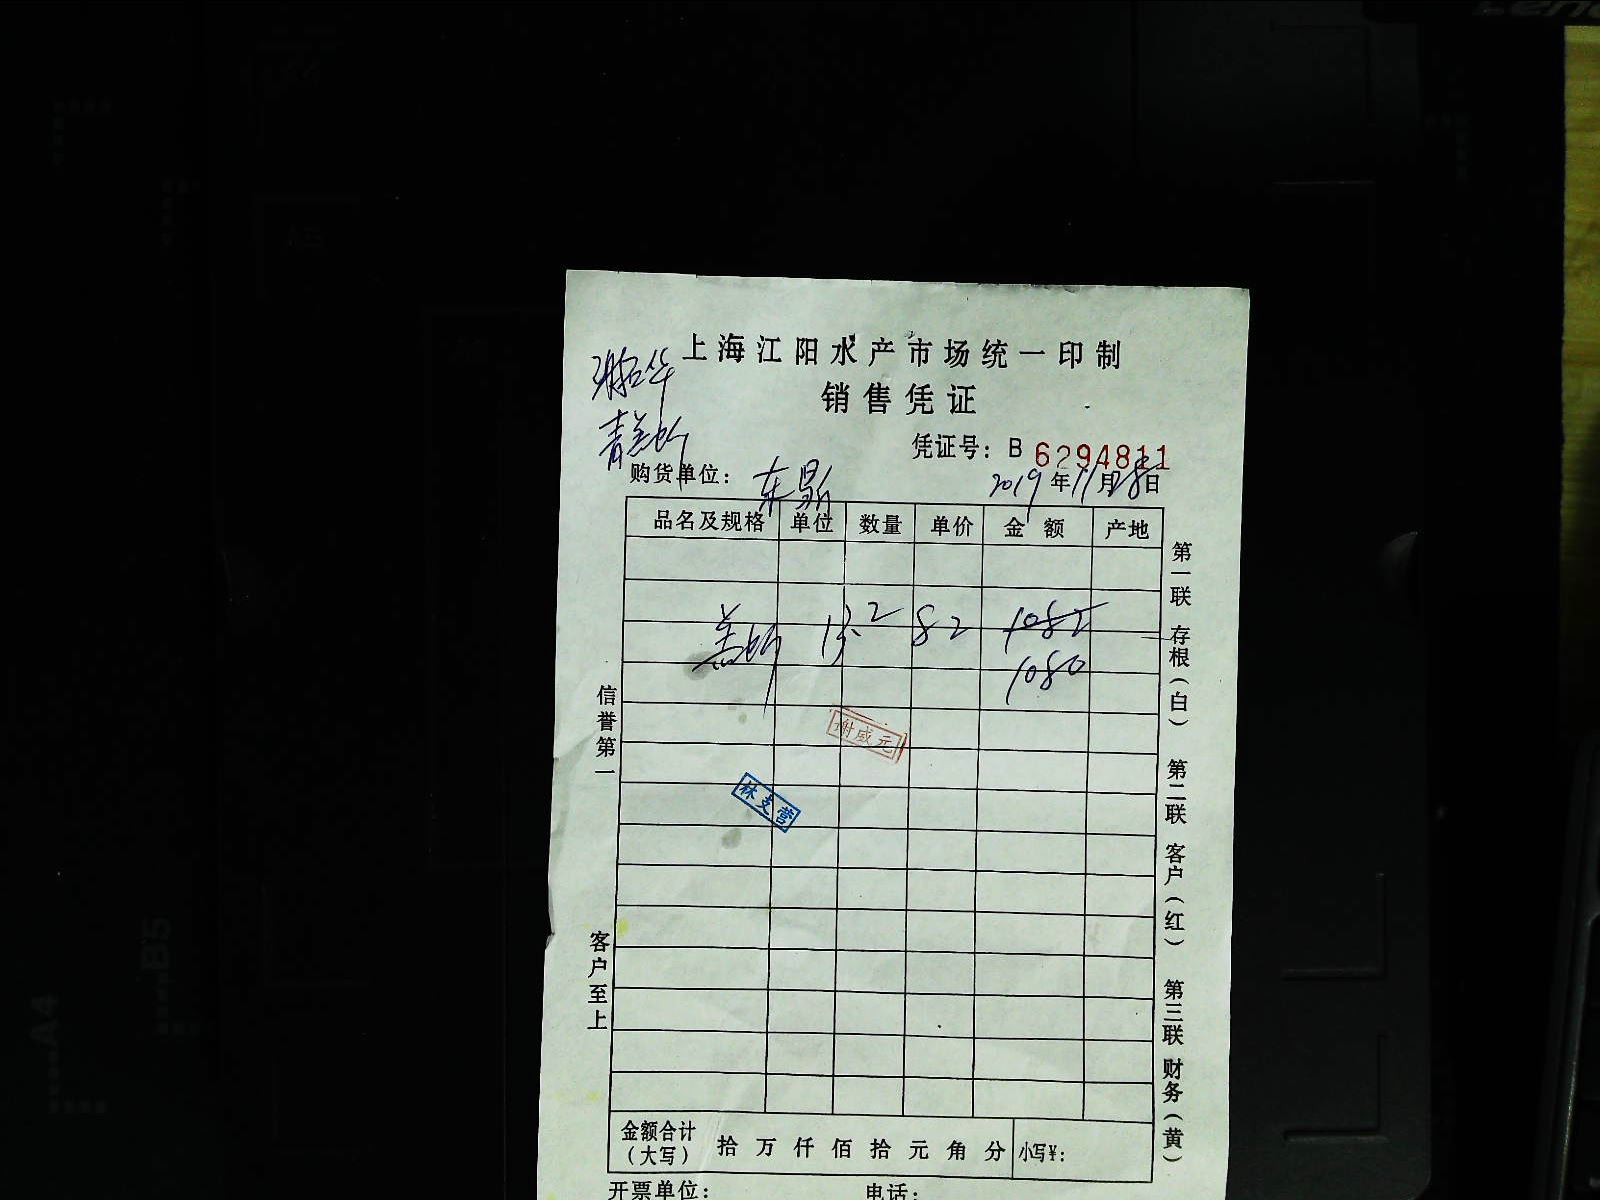 上海江阳水产市场统一印制
销售凭证
凭证号：B 6294811
购货单位：东
2019年11月28日
品名及规格 单位 数量 单价 金额 产地
13.2 82 1082
1080
谢威元
林支营
信誉第一
客户至上
第一联 存根（白） 第二联 客户（红） 第三联 财务（黄）
金额合计（大写） 拾万仟佰拾元角分 小写¥：
开票单位： 电话：
B5
A4